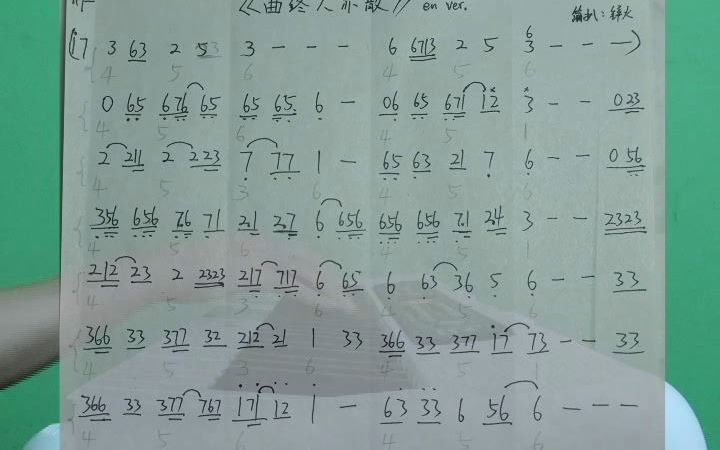 《曲终人不散》 en ver.
(17 3 63 2 53 3 - - - 6 6713 2 5 6 3 - - -)
4 5 6 4 5 6
0 65 676 65 65 65 6 - 06 65 671 12 3 - - 023
4 5 6 4 5 1
2 211 2 223 7 77 1 - 65 63 21 7 6 - - 056
4 5 3 6 4 5 6
356 656 76 71 21 27 6 656 656 656 71 24 3 - - 2323
4 5 6 4 5 1
212 23 2 2323 217 717 6 65 6 63 36 5 6 - - 33
4 5 3 6 4 5 6
366 33 377 32 212 21 1 33 366 33 377 17 73 - - 33
4 5 3 6 4 5 1
366 33 377 767 171 12 1 - 63 33 6 56 6 - - -
4 5 6 4 5 6